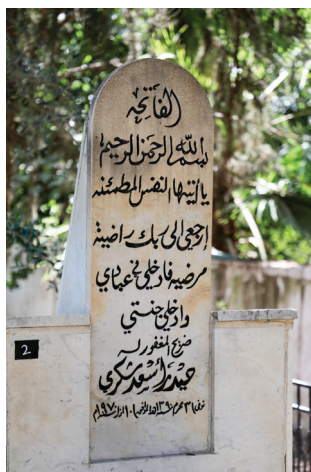 الفاتحه
بسم الله الرحمن الرحيم
يا ايتها النفس المطمئنه
ارجعي الى ربك راضية
مرضيه فادخلي في عبادي
وادخلي جنتي
ضريح المغفور له
حيدر أسعد شكري
2